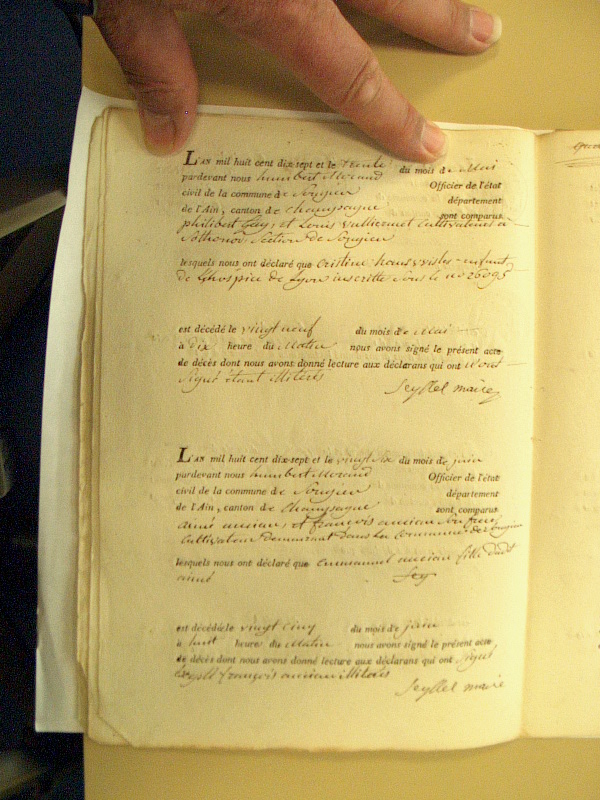 L'AN mil huit cent dix-sept et le trente du mois de Mai
pardevant nous humbert Morand Officier de l'état
civil de la commune de Songieu département
de l'Ain, canton de Champagne sont comparus
philibert Guy et Louis Vulliermet cultivateurs à
Sothonod Section de Songieu
lesquels nous ont déclaré que Cristine enfant
de Lhospice de Lyon inscritte sous le no 26095
est décédé le vingt neuf du mois de Mai
à dix heure du Matin nous avons signé le présent acte
de décès dont nous avons donné lecture aux déclarans qui ont n'ont
Signé étant illiterés
Seyssel maire
L'AN mil huit cent dix-sept et le vingt Six du mois de juin
pardevant nous humbert Morand Officier de l'état
civil de la commune de Songieu département
de l'Ain, canton de Champagne sont comparus
aimé ancian et françois ancian Son frere
Cultivateur demeurant dans la Commune de Songieu
lesquels nous ont déclaré que ancian fille dudt
aimé
est décédé le vingt cinq du mois de juin
à huit heure du Matin nous avons signé le présent acte
de décès dont nous avons donné lecture aux déclarans qui ont Signé
françois ancian illiterés
Seyssel maire